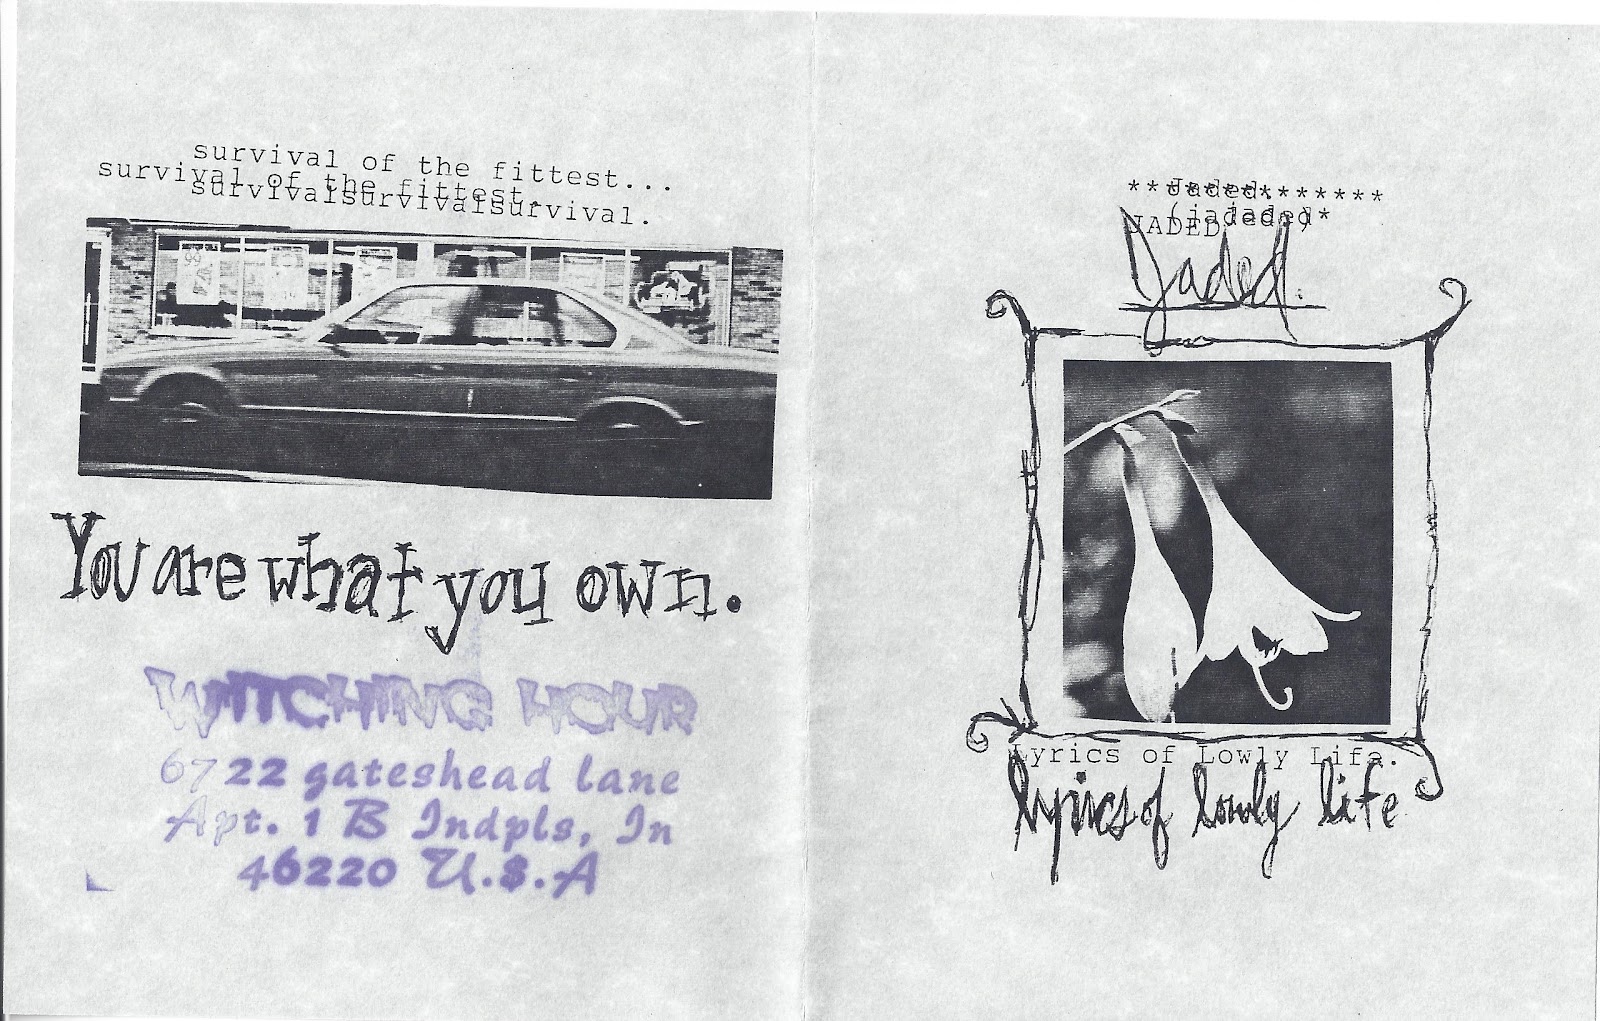 survival of the fittest...
survival of the fittest.
survivalsurvivalsurvival.
You are what you own.
WITCHING HOUR
6722 gateshead lane
Apt. 1 B Indpls, In
46220 U.$.A
**Jaded.*******
(jaded)*
JADED
Jaded.
Lyrics of Lowly Life.
lyrics of lowly life